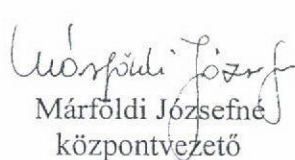 Márföldi József
Márföldi Józsefné
központvezető